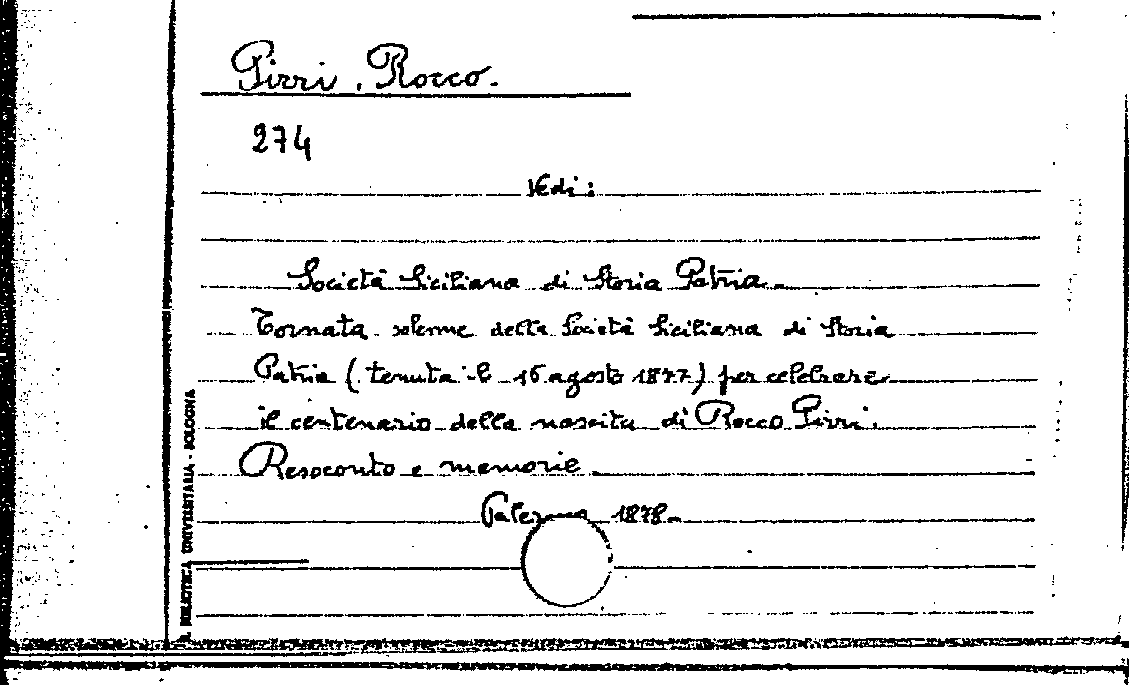 Pirri, Rocco.
274
Vedi:
Società Siciliana di Storia Patria.
Tornata solenne della Società Siciliana di Storia
Patria (tenuta il 16 agosto 1877) per celebrare
il centenario della nascita di Rocco Pirri.
Resoconto e memorie
Palermo 1878.
R. BIBLIOTECA UNIVERSITARIA - BOLOGNA